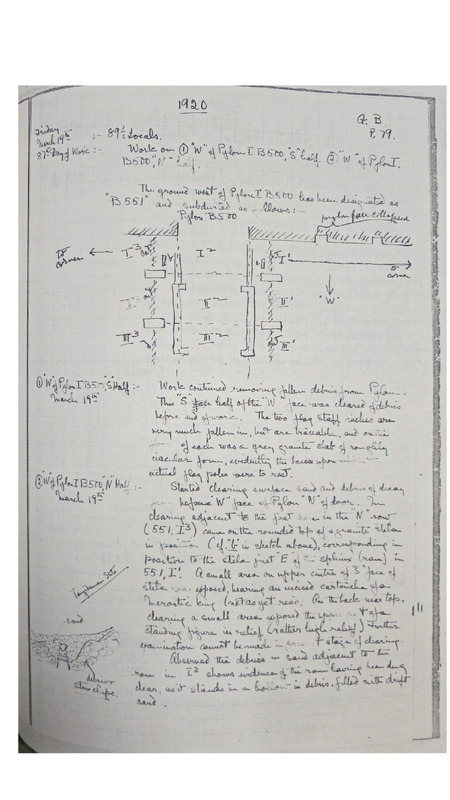 1920
G. B
P. 79.
Friday
March 19th :- 89½ Locals.
87th Day of Work :- Work on ① "W" of Pylon I B500, "S" half. ② "W" of Pylon I.
B500, "N" half.
The ground west of Pylon I B500 has been designated as
"B 551" and subdivided as follows :-
Pylon B500
pylon face collapsed
to corner
I³
I²
I¹
to corner
"W"
II²
II¹
III³
III²
III¹
① "W" of Pylon I B5--, "S" Half :-
March 19th
Work continued removing fallen debris from Pylon.
This "S" face half of the "W" face was cleared of debris
before end of work. The two flag staff niches are
very much fallen in, but are traceable, and on the
of each was a grey granite slab of roughly
circular form, evidently the bases upon
actual flag poles were to rest.
② "W" of Pylon I B500, "N" Half :-
March 19th
Started clearing surface sand and debris of decay
before "W" face of Pylon "N" of door. In
clearing adjacent to the first in the "N" row
(551, I³) came on the rounded top of a granite stela
in position (cf. in sketch above), corresponding in
position to the stela just E of the sphinx (ram) in
551, I¹. A small area on upper centre of "S" face of
stela exposed, bearing an incised cartouche of a
Meroitic king (not as yet read). On the back near top,
clearing a small area exposed the upper of a
standing figure in relief (rather high relief). Further
examination cannot be made in stage of clearing.
Observed the debris + sand adjacent to the
ram in I³ shows evidences of the ram having been dug
clear, as it stands in a hollow in debris, filled with drift
sand.
sand
debris +
stone chips.